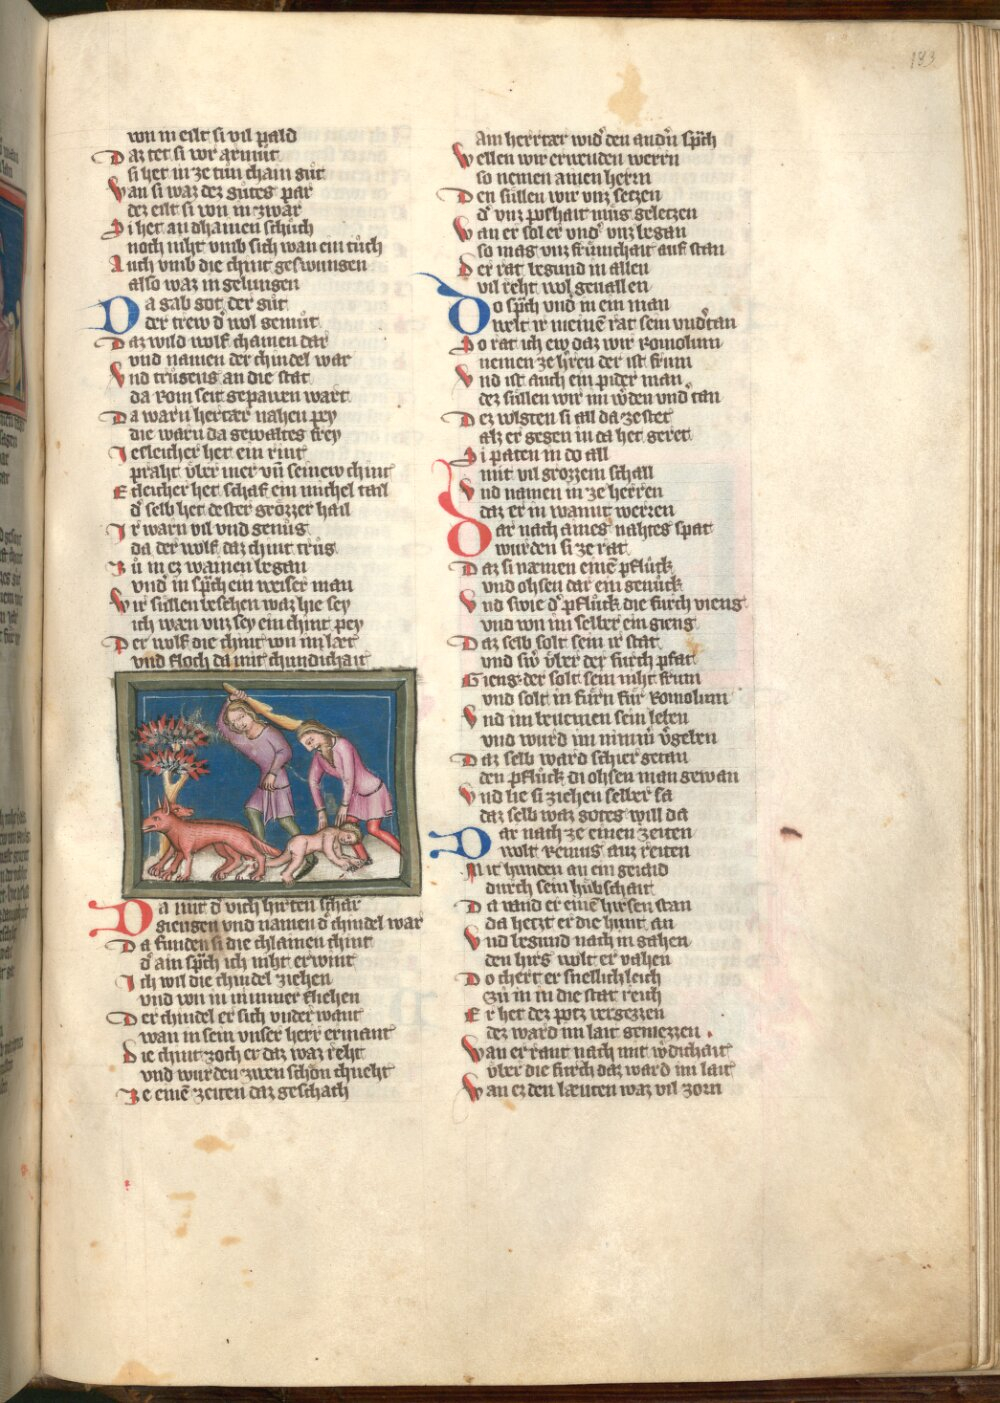 183
von in eilt si vil pald
Daz tet si vor armut
si het in ze tun chain gut
Van si waz dez gutes par
dez eilt si von in zwar
Si het an dhainen schuch
noch niht vmb sich wan ein tuch
Auch vmb die chint geswungen
also waz in gelungen
Da gab got der gut
der trew d wol gemut
Daz wild wolf chamen dar
vnd namen der chindel war
Vnd trugens an die stat
da Rom seit gepawen wart
Da warn hertær nahen pey
die warn da gewaltes frey
Iesleicher het ein rint
praht vber mer vn seinew chint
Etleicher het schaf ein michel tail
d selb het dester grozzer hail
Ir warn vil vnd genug
da der wolf daz chint trug
Zu in ez wainen began
vnd in spch ein weiser man
Wir sullen besehen waz hie sey
ich wæn vnz sey ein chint pey
Der wolf die chint von im læt
vnd floch da mit chundichait
Da mit d vich hirten schar
giengen vnd namen d chindel war
Da funden si die chlainen chint
d ain spch ich niht erwint
Ich wil die chindel ziehen
vnd von in nimmer fliehen
Der chindel er sich vnder want
wan in sein vnser herr ermant
Die chint zoch er daz waz reht
vnd wurden zwen schon chneht
Ze eine zeiten daz geschach
Ain hertær wid den andn spch
Wellen wir erwenden werrn
so nemen ainen herrn
Den sullen wir vnz setzen
d vnz poshait mug geletzen
Wan er sol er vnd vnz began
so mag vnz frumchait auf stan
Der rat begund in allen
vil reht wol geuallen
Do spch vnd in ein man
welt ir meine rat sein vndtan
So rat ich ew daz wir Romolum
nemen ze hren der ist frum
Vnd ist auch ein pider man
dez sullen wir im wden vnd tan
Dez volgten si all da zestet
alz er gegen in da het geret
Si paten in do all
mit vil grozzem schall
Vnd namen in ze herren
daz er in wantt werren
Dar nach aines nahtes spat
wurden si ze rat
Daz si næmen eine pfluck
vnd ohsen dar ein genuck
Vnd swie d pfluck die furch vieng
vnd von im selber ein gieng
Daz selb solt sein ir stat
vnd sw vber der furch pfat
Gieng der solt sein niht frum
vnd solt in furn fur Romolum
Vnd im benemen sein leben
vnd wurd im nimm vgeben
Daz selb ward schier getan
den pfluck di ohsen man gewan
Vnd lie si ziehen selber sa
daz selb waz gotes will da
Dar nach ze einen zeiten
wolt Remus auz reiten
Mit hunden an ein geiaid
durch sein hubschait
Da vand er eine hirsen stan
da hetzt er die hunt an
Vnd begund nach in gahen
den hirs wolt er vahen
Do chert er snellichleich
zu in in die stat reich
Er het dez potz vergezzen
dez ward im lait gemezzen .
Wan er rant nach mit wdichait
vber die furch daz ward im lait
Wan ez den læuten waz vil zorn